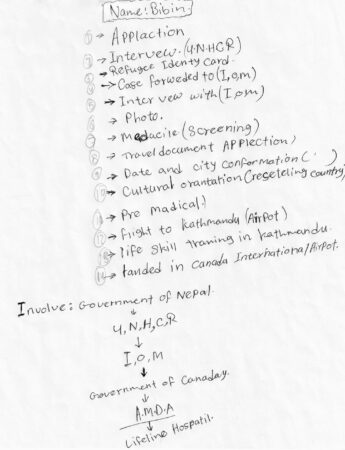 Name: Bibin
1 → Applaction
2 → Intervew. (U.N.H.C.R)
3 → Refugee Identy card.
4 → Case forweded to (I,o,m)
5 → Inter vew with (I.o.m)
6 → Photo.
7 → Medacile (Screening)
8 → Travel document Applection)
9 → Date and city conformation ( )
10 → Cultural orantation (regeteling country)
11 → Pre madical?
12 → flight to kathmandu (AirPot)
13 → life skill traning in kathmandu.
14 → Landed in Canada International Airpot.
Involve: Government of Nepal.
↓
U,N,H,C,R
↓
I,O,M
↓
Government of Canaday.
↓
A.M.D.A
↓
Lifeline Hospatil.